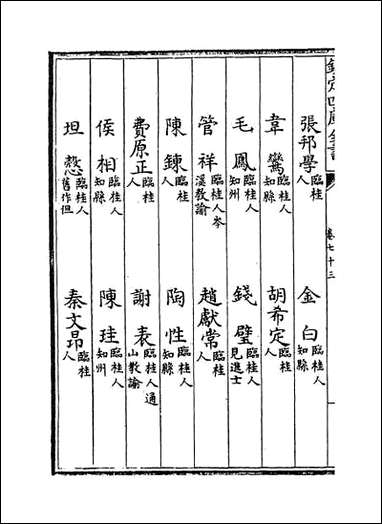 欽定四庫全書
卷七十三
張邦學臨桂人
金白臨桂人知縣
韋鸞臨桂人知縣
胡希定臨桂人
毛鳳臨桂人知州
錢璧臨桂人見進士
管祥臨桂人岑溪教諭
趙獻常臨桂人
陳錬臨桂人
陶性臨桂人知縣
費原正臨桂人
謝表臨桂人通山教諭
侯相臨桂人知縣
陳珪臨桂人知州
坦慤臨桂人舊作但
秦文昂臨桂人